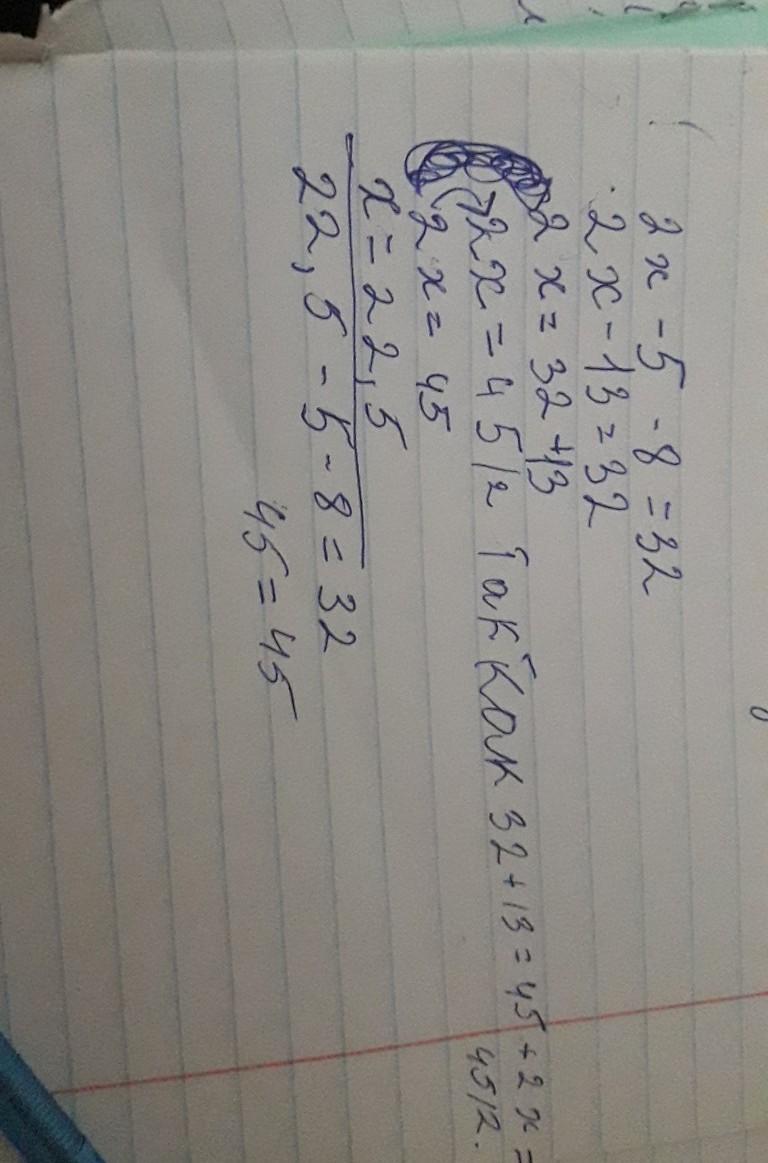 2x - 5 - 8 = 32
2x - 13 = 32
2x = 32 + 13
2x = 45/2 Так как 32 + 13 = 45 + 2x =
45/2.
2x = 45
x = 22,5
22,5 - 5 - 8 = 32
45 = 45